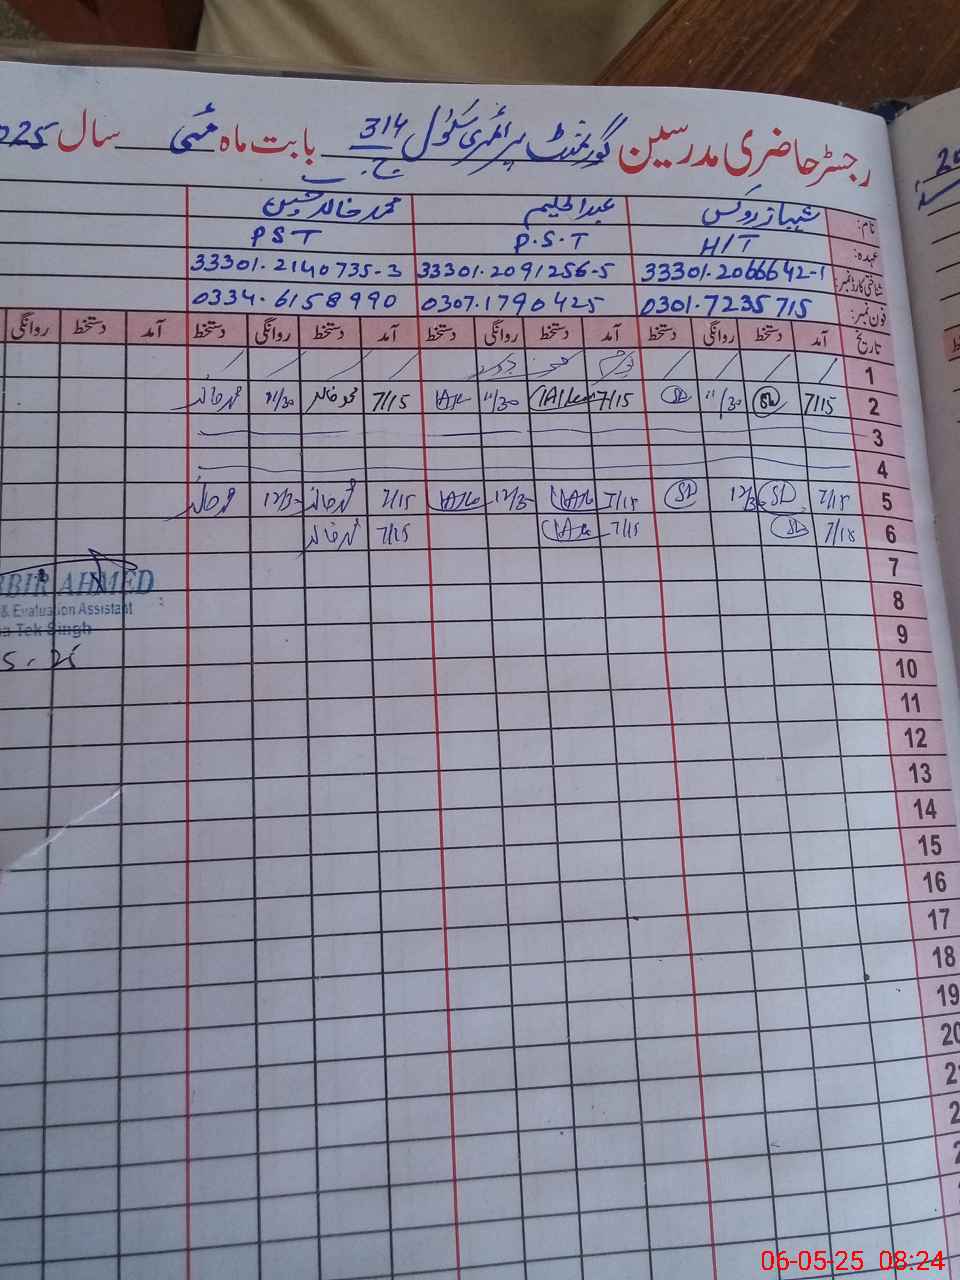 رجسٹر حاضری مدرسین گورنمنٹ پرائمری سکول 314 ج ب بابت ماہ مئی سال 2025
نام: شہباز عبدالحلیم محمد خالد حسین
عہدہ: H/T P.S.T PST
شناختی کارڈ نمبر: 33301.2066642-1 33301.2091256-5 33301.2140735-3
فون نمبر: 0301.7235715 0307.1790425 0334.6158990
تاریخ آمد دستخط روانگی دستخط آمد دستخط روانگی دستخط آمد دستخط روانگی دستخط آمد دستخط روانگی
1
2 7/15 11/30 7/15 11/30 7/15 محمد خالد 11/30 محمد خالد
3
4
5 7/15 12/30 7/15 12/30 7/15 محمد خالد 12/30 محمد خالد
6 7/15 7/15 7/15 محمد خالد
7
BBIR AHMED
8
& Evaluation Assistant
9
a Tek Singh
10
11
12
13
14
15
16
17
18
19
20
06-05-25 08:24